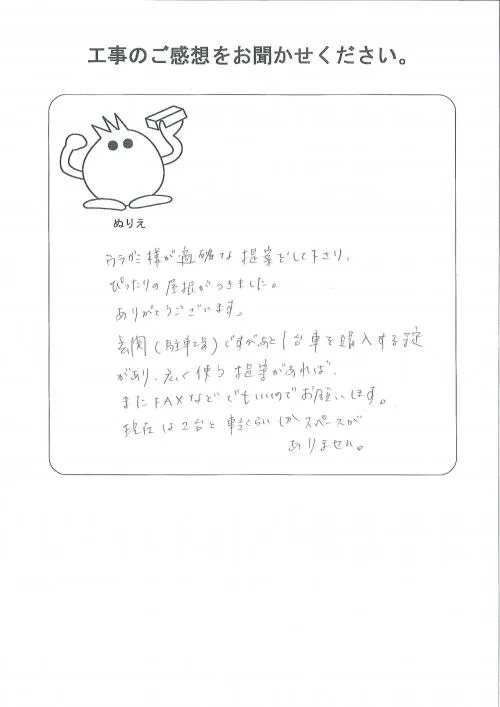 工事のご感想をお聞かせください。
ぬりえ
ウラガミ様が適確な提案をして下さり、
ぴったりの屋根がつきました。
ありがとうございます。
玄関(駐車場)ですがあと1台車を購入する予定
があり、広く使う提案があれば、
またFAXなどでもいいのでお願いします。
現在は2台と軽くらいしかスペースが
ありません。